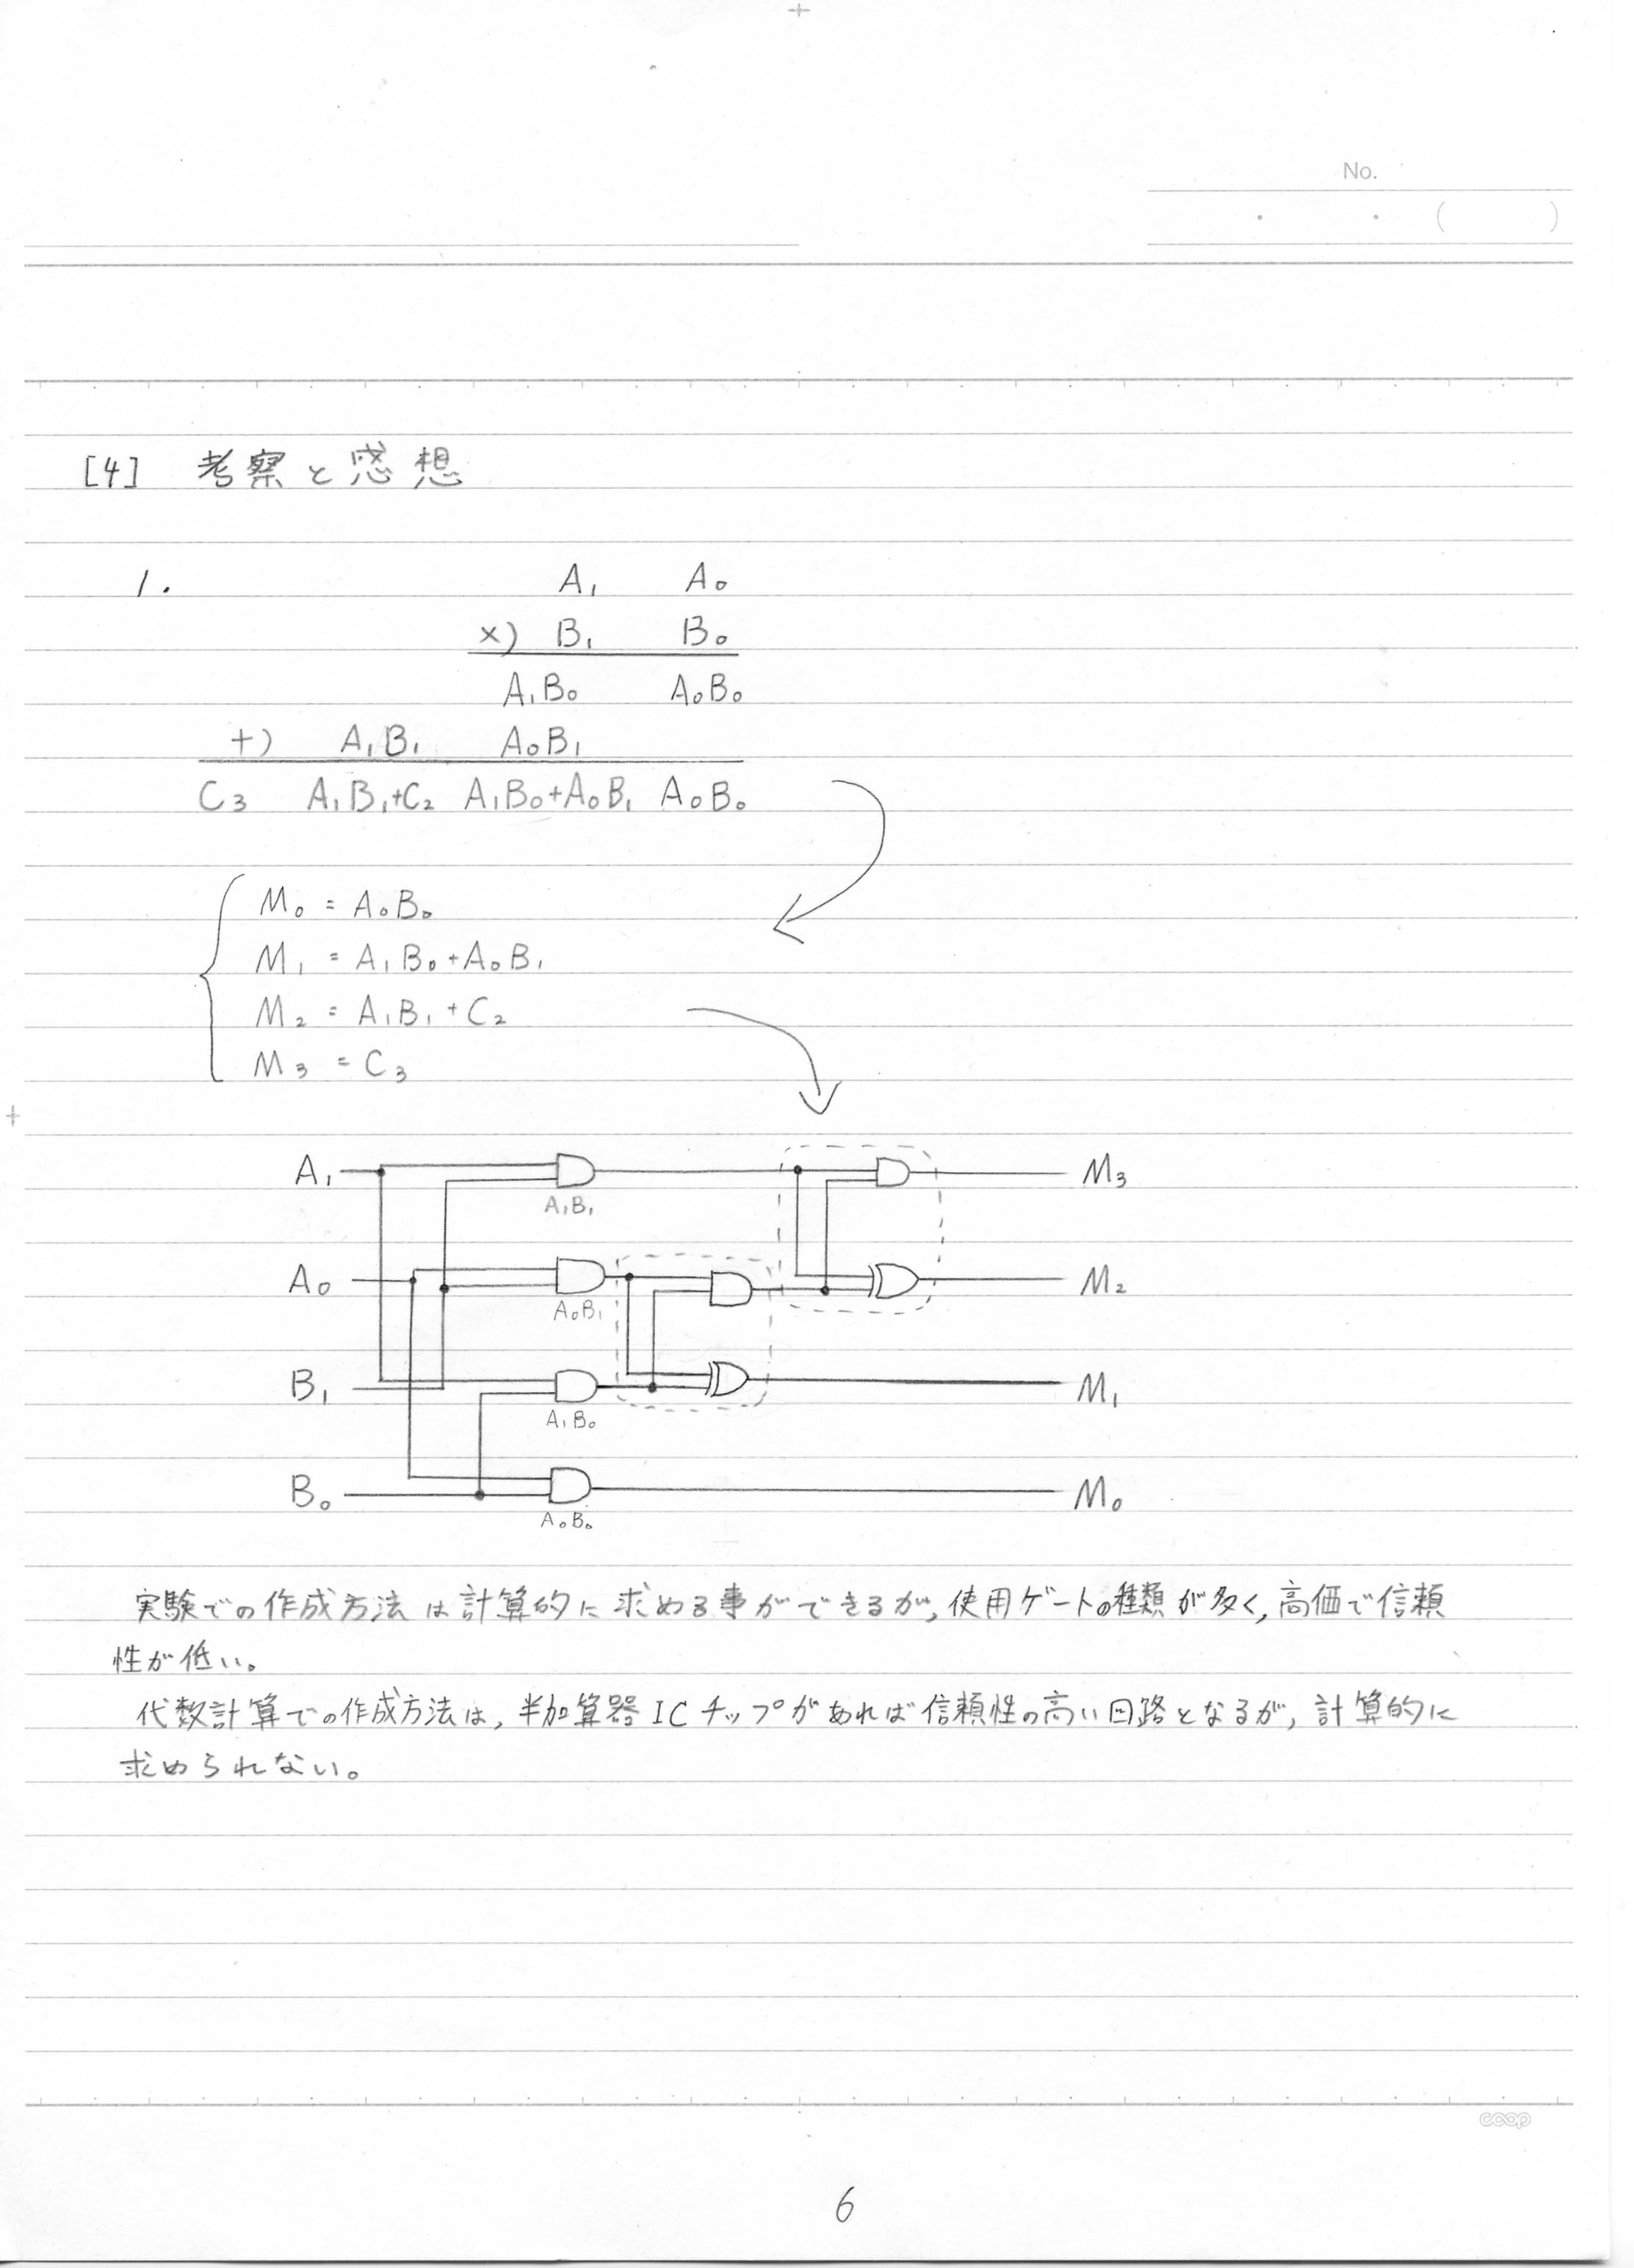 No.
・ ・ ( )
[4] 考察と感想
1. A₁ A₀
×) B₁ B₀
A₁B₀ A₀B₀
+) A₁B₁ A₀B₁
C₃ A₁B₁+C₂ A₁B₀+A₀B₁ A₀B₀
M₀ = A₀B₀
M₁ = A₁B₀+A₀B₁
M₂ = A₁B₁+C₂
M₃ = C₃
A₁ M₃
A₁B₁
A₀ M₂
A₀B₁
B₁ M₁
A₁B₀
B₀ M₀
A₀B₀
実験での作成方法は計算的に求める事ができるが,使用ゲートの種類が多く,高価で信頼
性が低い。
代数計算での作成方法は,半加算器ICチップがあれば信頼性の高い回路となるが,計算的に
求められない。
coop
6